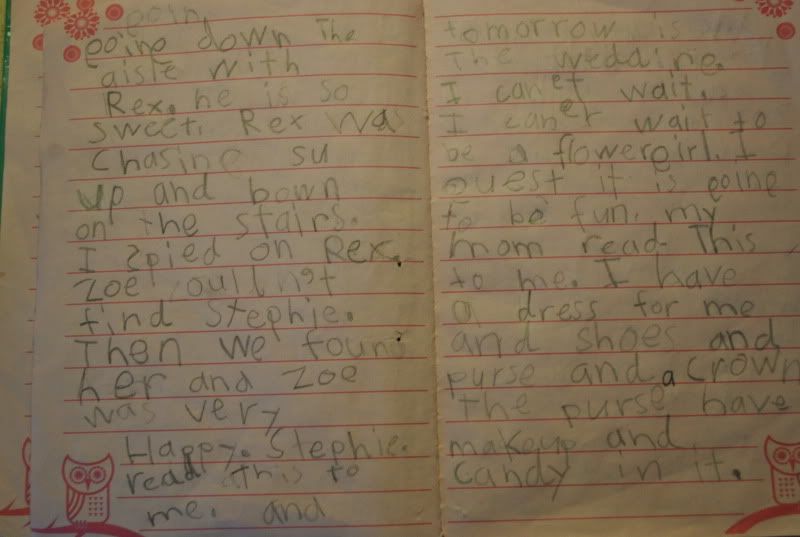 goin,
going down The
aisle with
Rex. he is so
sweet. Rex was
Chasing su
up and bown
on the stairs.
I Spied on Rex.
Zoe oull not
find Stephie.
Then we found
her and Zoe
was very
Happy. Stephie.
read this to
me. and
tomorrow is
The wedding.
I canet wait.
I caner wait to
be a flowergirl. I
guest it is going
to be fun. my
mom read This
to me. I have
a dress for me
and shoes and
purse and a crown
The purse have
makeup and
candy in it.